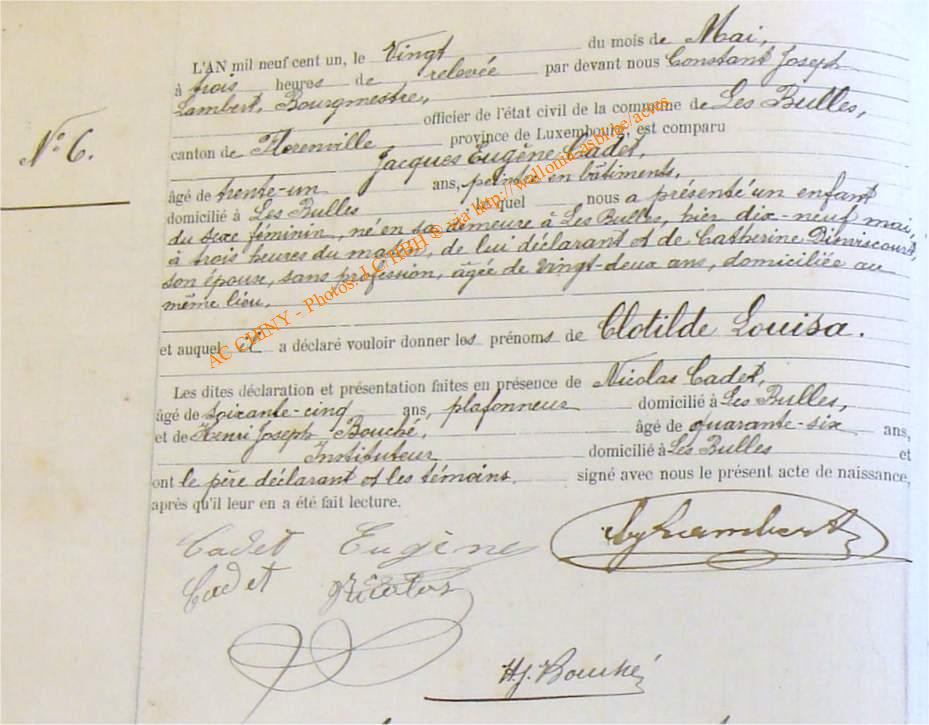 L'AN mil neuf cent un, le Vingt du mois de Mai,
à trois heures de relevée par devant nous Constant Joseph
Lambert, Bourgmestre,
officier de l'état civil de la commune de Les Bulles,
N° 6.
canton de Florenville, province de Luxembourg, est comparu
Jacques Eugène Cadet,
âgé de trente-un ans, peintre en bâtiments,
domicilié à Les Bulles lequel nous a présenté un enfant
du sexe féminin, né en sa demeure à Les Bulles, hier dix-neuf mai,
à trois heures du matin, de lui déclarant et de Catherine
son épouse, sans profession, âgée de vingt-deux ans, domiciliée au
même lieu,
et auquel il a déclaré vouloir donner les prénoms de Clotilde Louisa.
Les dites déclaration et présentation faites en présence de Nicolas Cadet,
âgé de soixante-cinq ans, plafonneur domicilié à Les Bulles,
et de Henri Joseph Bouché, âgé de quarante-six ans,
Instituteur domicilié à Les Bulles et
ont le père déclarant et les témoins signé avec nous le présent acte de naissance,
après qu'il leur en a été fait lecture.
Cadet Eugène
Lambert
Cadet Nicolas
H. J. Bouché
AC CHINY - Photos: LC HBH ® via http://wallonia-asbl.be/actes